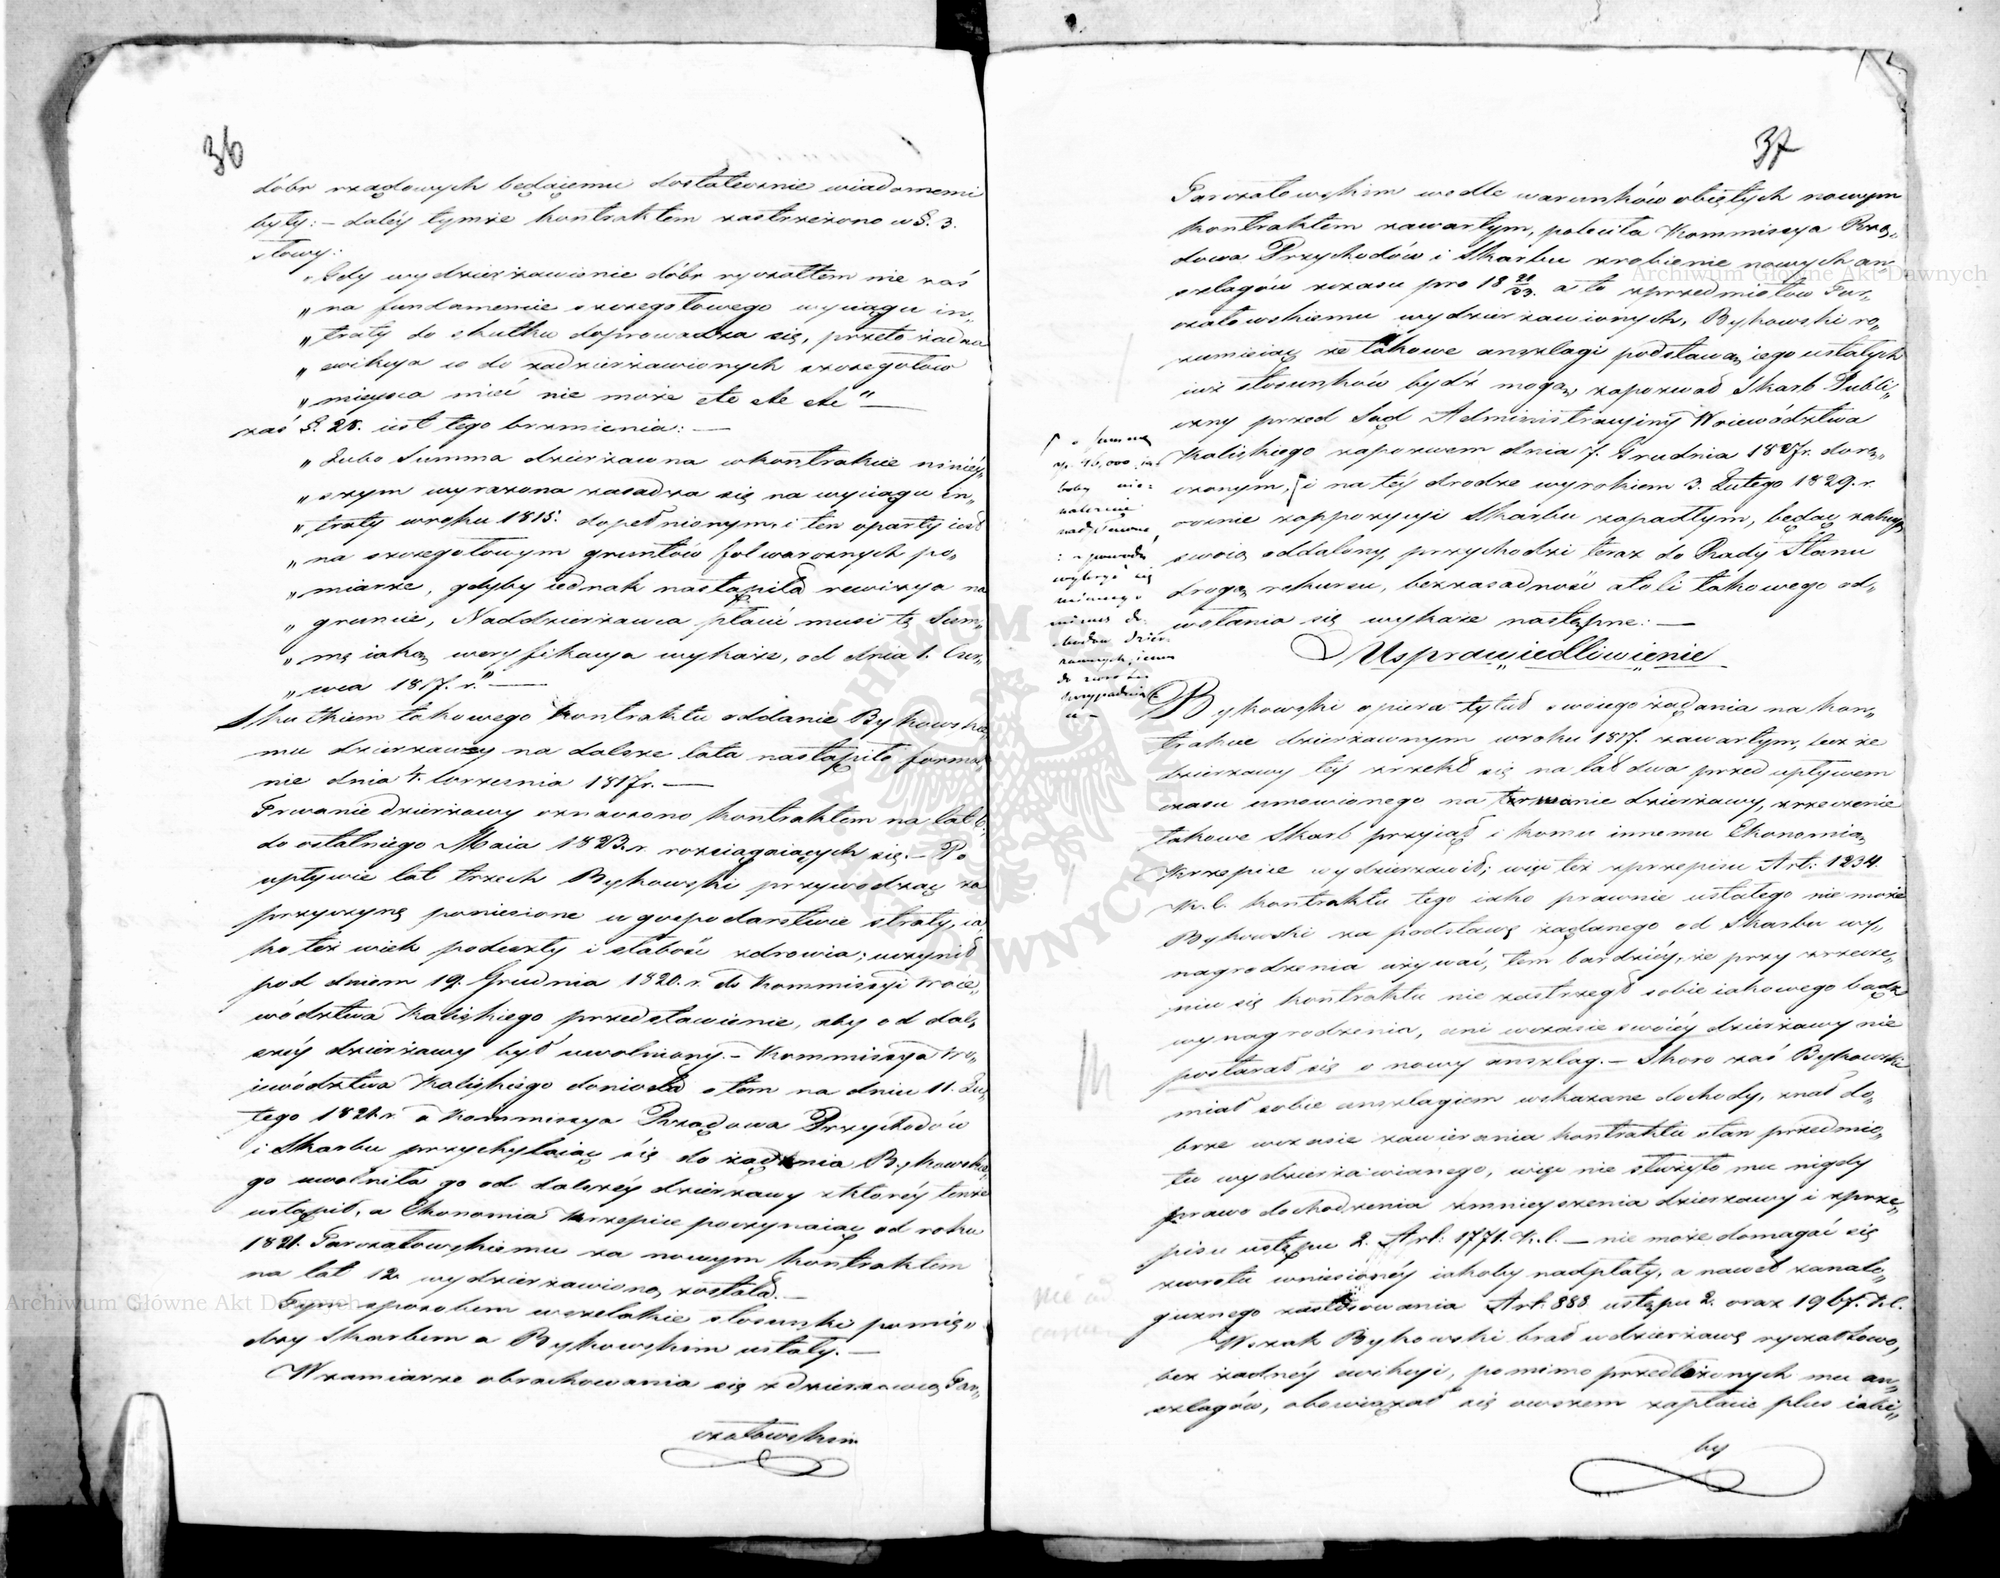 36
dóbr rządowych będącemu dostatecznie wiadomemi
były: – daléy tymże kontraktem zastrzeżono w §. 3.
słowy:
„Gdy wydzierżawienie dóbr ryczałtem nie zaś
„na fundamencie szczegółowego wyciągu in„
„traty do skutku doprowadza się, przeto żadna
„ewikcya co do zadzierżawionych szczegółów
„mieysca mieć nie może etc etc etc" —
zaś §. 28. iest tego brzmienia: —
„Lubo Summa dzierżawna w kontrakcie niniéy„
„szym wyrażona zasadza się na wyciągu in„
„traty w roku 1815. dopełnionym, i ten oparty iest
„na szczegółowym gruntów folwarcznych po„
„miarze, gdyby iednak nastąpiła rewizya na
„gruncie, Naddzierżawca płacić musi tę Sum„
„mę iaką weryfikacya wykaże, od dnia 1. Czer„
„wca 1817. r." —
Skutkiem takowego kontraktu oddanie Bykowskie„
mu dzierżawy na dalsze lata nastąpiło formal„
nie dnia 4. Września 1817 r. —
Trwanie dzierżawy oznaczono kontraktem na lat 6.
do ostatniego Maia 1823. r. rozciągaiących się. – Po
upływie lat trzech Bykowski przywodząc za
przyczynę poniesione w gospodarstwie straty, ia„
ko też wiek podeszły i słabość zdrowia; uczynił
pod dniem 19. Grudnia 1820. r. do Kommissyi Woie„
wództwa Kaliskiego przedstawienie, aby od dal„
széy dzierżawy był uwolniony. – Kommissya Wo„
iewództwa Kaliskiego doniosła o tem na dniu 11. Lu„
tego 1821. r. a Kommissya Rządowa Przychodów
i Skarbu przychylaiąc się do żądania Bykowskie„
go uwolniła go od dalszéy dzierżawy z któréy tenże
ustąpił, a Ekonomia Krzepice poczynaiąc od roku
1821. Garczałowskiemu za nowym kontraktem
na lat 12 wydzierżawioną została. —
Tym sposobem wszelkie stosunki pomię„
dzy Skarbem a Bykowskim ustały. —
W zamiarze obrachowania się z dzierżawcą Gar„
czałowskim
37
Garczałowskim wedle warunków obiętych nowym
kontraktem zawartym, poleciła Kommissya Rzą„
dowa Przychodów i Skarbu zrobienie nowych an„
szlagów z czasu pro 18 22/23. a to z przedmiotów Gar„
czałowskiemu wydzierżawionych, Bykowski ro„
zumieiąc że takowe anszlagi podstawą iego ustałych
iuż stosunków bydź mogą, zapozwał Skarb Publi„
czny przed Sąd Administracyiny Woiewództwa
Kaliskiego zapozwem dnia 7. Grudnia 1827 r. dorę„
czonym, i na téy drodze wyrokiem 3. Lutego 1829. r.
ocznie z appozycyi Skarbu zapadłym, będąc z akcyą
swoią oddalony, przychodzi teraz do Rady Stanu
drogą rekursu, bezzasadność atoli takowego od„
wołania się wykaże następne: —
o Summę
zł. 46,000 ia
koby nie„
należnie
nadpłaconą,
z powodu
wybrać się
mianego
nimi do
chodu dzier
żawnych, iemu
do zwrotu
przypada
Usprawiedliwienie
Bykowski opiera tytuł swoiego żądania na kon„
trakcie dzierżawnym w roku 1817. zawartym, lecz że
dzierżawy téy zrzekł się na lat dwa przed upływem
czasu umówionego na trwanie dzierżawy, zrzeczenie
takowe Skarb przyiął i komu innemu Ekonomią
Krzepice wydzierżawił; więc też z przepisu Art: 1234.
K. C. kontraktu tego iako prawnie ustałego nie może
Bykowski za podstawę żądanego od Skarbu wy„
nagrodzenia używać, tem bardziéy, że przy zrzecze„
niu się kontraktu nie zastrzegł sobie iakowego bądź
wynagrodzenia, ani w czasie swoiéy dzierżawy nie
postarał się o nowy anszlag. – Skoro zaś Bykowski
miał sobie anszlagiem wskazane dochody, znał do„
brze w czasie zawierania kontraktu stan przedmio„
tu wydzierżawianego, więc nie służyło mu nigdy
prawo dochodzenia zmnieyszenia dzierżawy i z prze„
pisu ustępu 2. Art: 1771. K. C. — nie może domagać się
zwrotu wniesionéy iakoby nadpłaty, a nawet z analo„
gicznego zastosowania Art: 888. ustępu 2. oraz 1967. K. C.
Wszak Bykowski brał w dzierżawę ryczałtowo,
bez żadnéy ewikcyi, pomimo przedłożonych mu an„
szlagów, obowiązał się owszem zapłacić plus iaki„
by
Archiwum Główne Akt Dawnych
Archiwum Główne Akt Dawnych